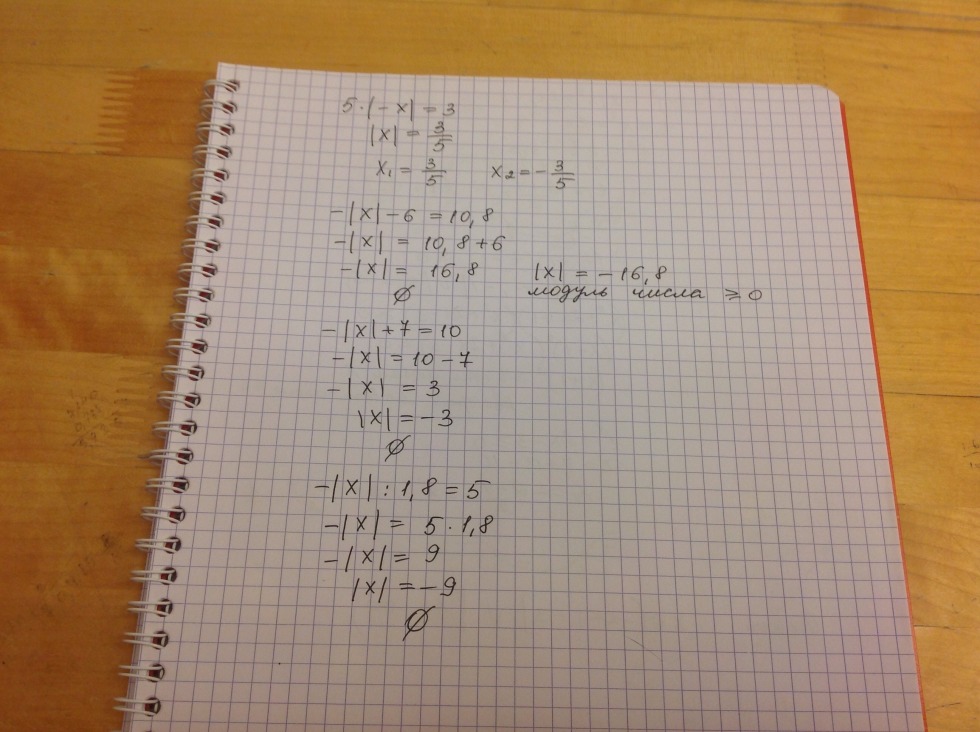 5·|-x| = 3
|x| = 3/5
x₁ = 3/5 x₂ = -3/5
-|x|-6 = 10,8
-|x| = 10,8+6
-|x| = 16,8 |x| = -16,8
∅ модуль числа ≥ 0
-|x|+7=10
-|x|=10-7
-|x| = 3
|x|=-3
∅
-|x|:1,8=5
-|x|= 5·1,8
-|x|= 9
|x| =-9
∅